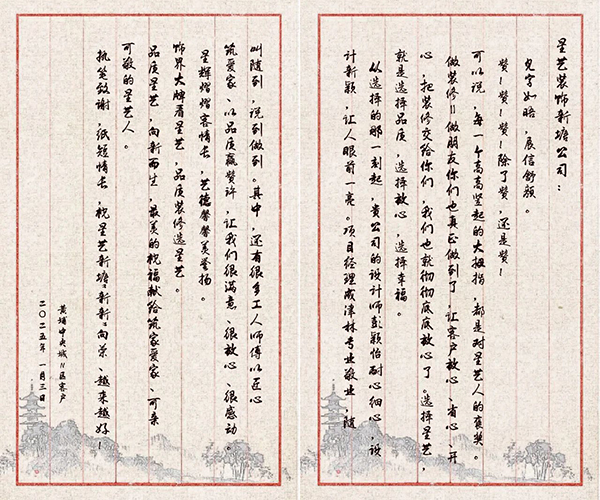 星艺装饰新塘公司：
见字如晤，展信舒颜。
赞！赞！赞！除了赞，还是赞！
可以说，每一个高高竖起的大拇指，都是对星艺人的褒奖。
做装修=做朋友你们也真正做到了，让客户放心、省心、开
心，把装修交给你们，我们也就彻彻底底放心了。选择星艺，
就是选择品质，选择放心，选择幸福。
从选择的那一刻起，贵公司的设计师彭颖怡耐心细心，设
计新颖，让人眼前一亮。项目经理成津林专业敬业，随
叫随到，说到做到。其中，还有很多工人师傅以匠心
筑爱家、以品质赢赞许，让我们很满意、很放心、很感动。
星辉熠熠客情长，艺德馨馨美誉扬。
饰界大牌看星艺，品质装修选星艺。
品质星艺，向新而生，最美的祝福献给筑家爱家、可亲
可敬的星艺人。
执笔致谢，纸短情长，祝星艺新塘"新新"向荣、越来越好！
黄埔中央城 11区客户
二〇二五年 一月三日